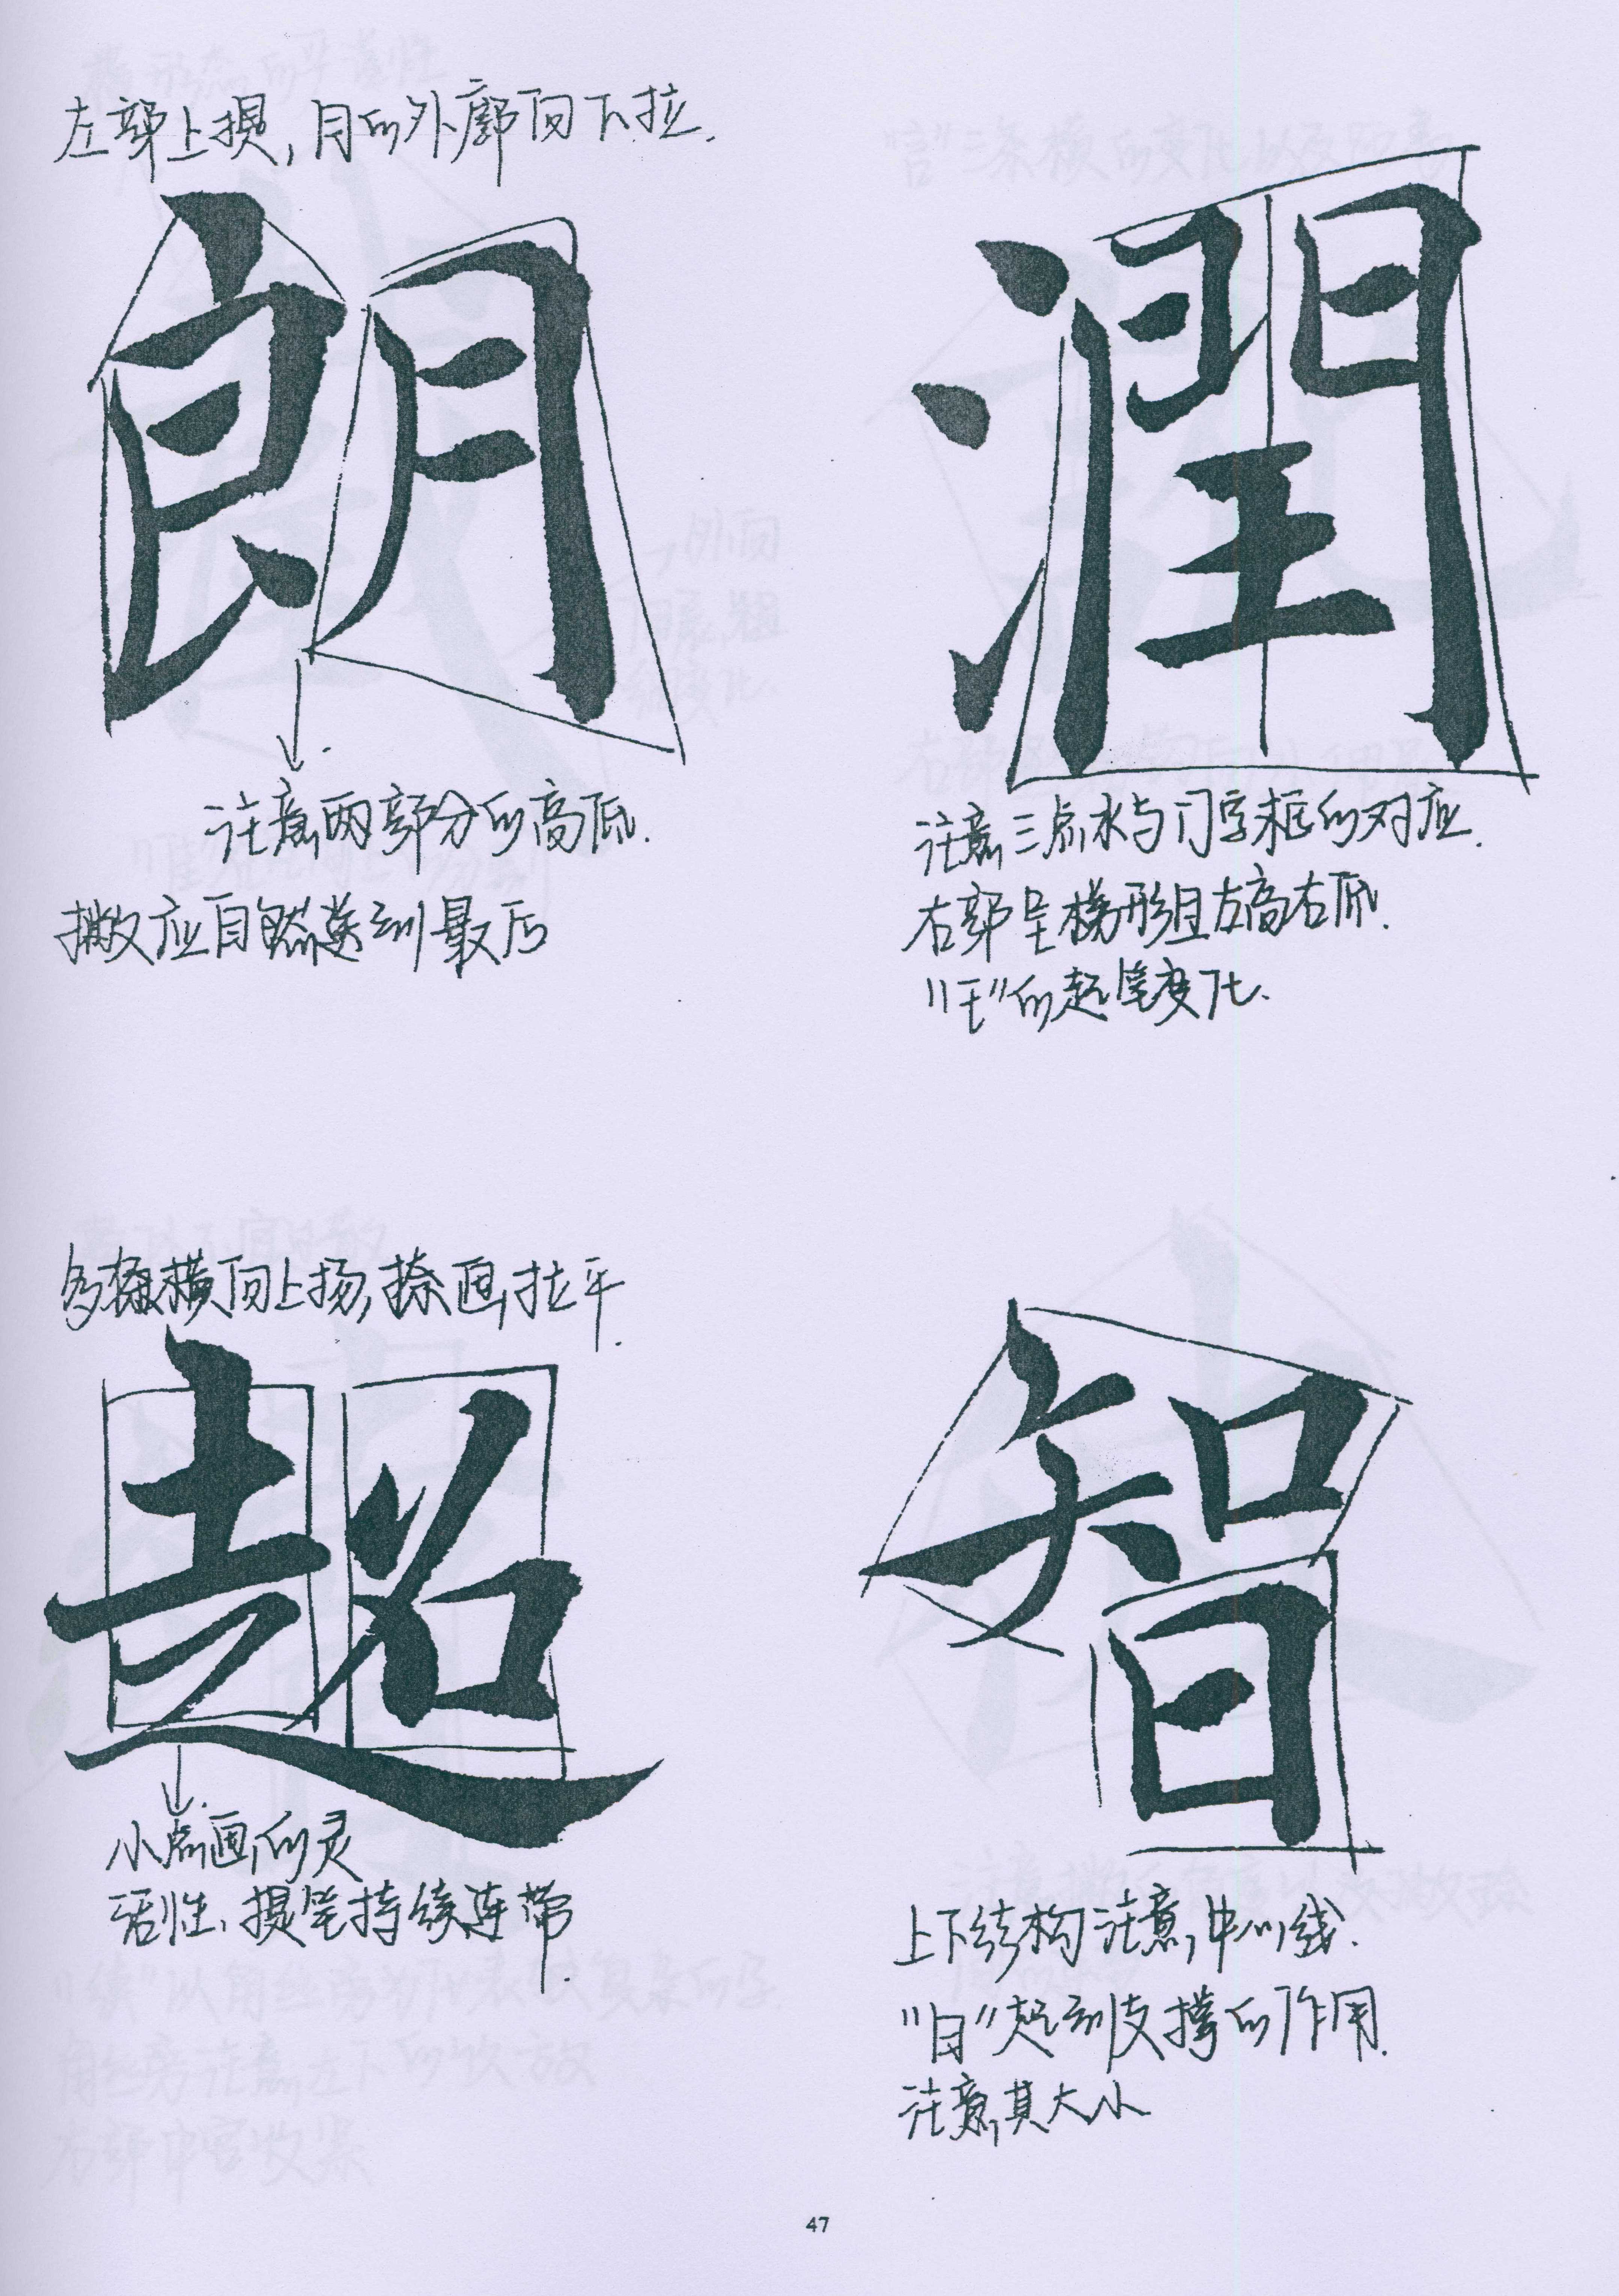 左部上提,月的外廓向下拉.
朗
注意两部分的高低.
撇应自然送到最后
潤
注意三点水与门字框的对应.
右部呈梯形且左高右低.
"王"的起笔变化.
多横横向上扬,捺画拉平.
超
小点画的灵
活性、提笔持续连带.
智
上下结构注意中心线.
"日"起到支撑的作用.
注意其大小
47